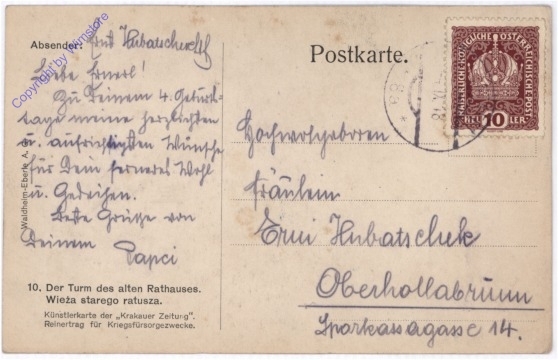 Absender: Hubatschek
Liebe Ernerl!
Zu Deinem 4. Geburts-
tage meine herzlichsten
u. aufrichtigsten Wünsche
für Dein ferneres Wohl
u. Gedeihen.
Beste Grüsse von
Deinem Papci
10. Der Turm des alten Rathauses.
Wieża starego ratusza.
Künstlerkarte der „Krakauer Zeitung".
Reinertrag für Kriegsfürsorgezwecke.
Waldheim-Eberle A. G.
Copyright by Wimstore
Postkarte.
KAISERLICHE KÖNIGLICHE ÖSTERREICHISCHE POST
HELLER
10
Hochwohlgeboren
Fräulein
Erni Hubatschek
Oberhollabrunn
Sparkassagasse 14.